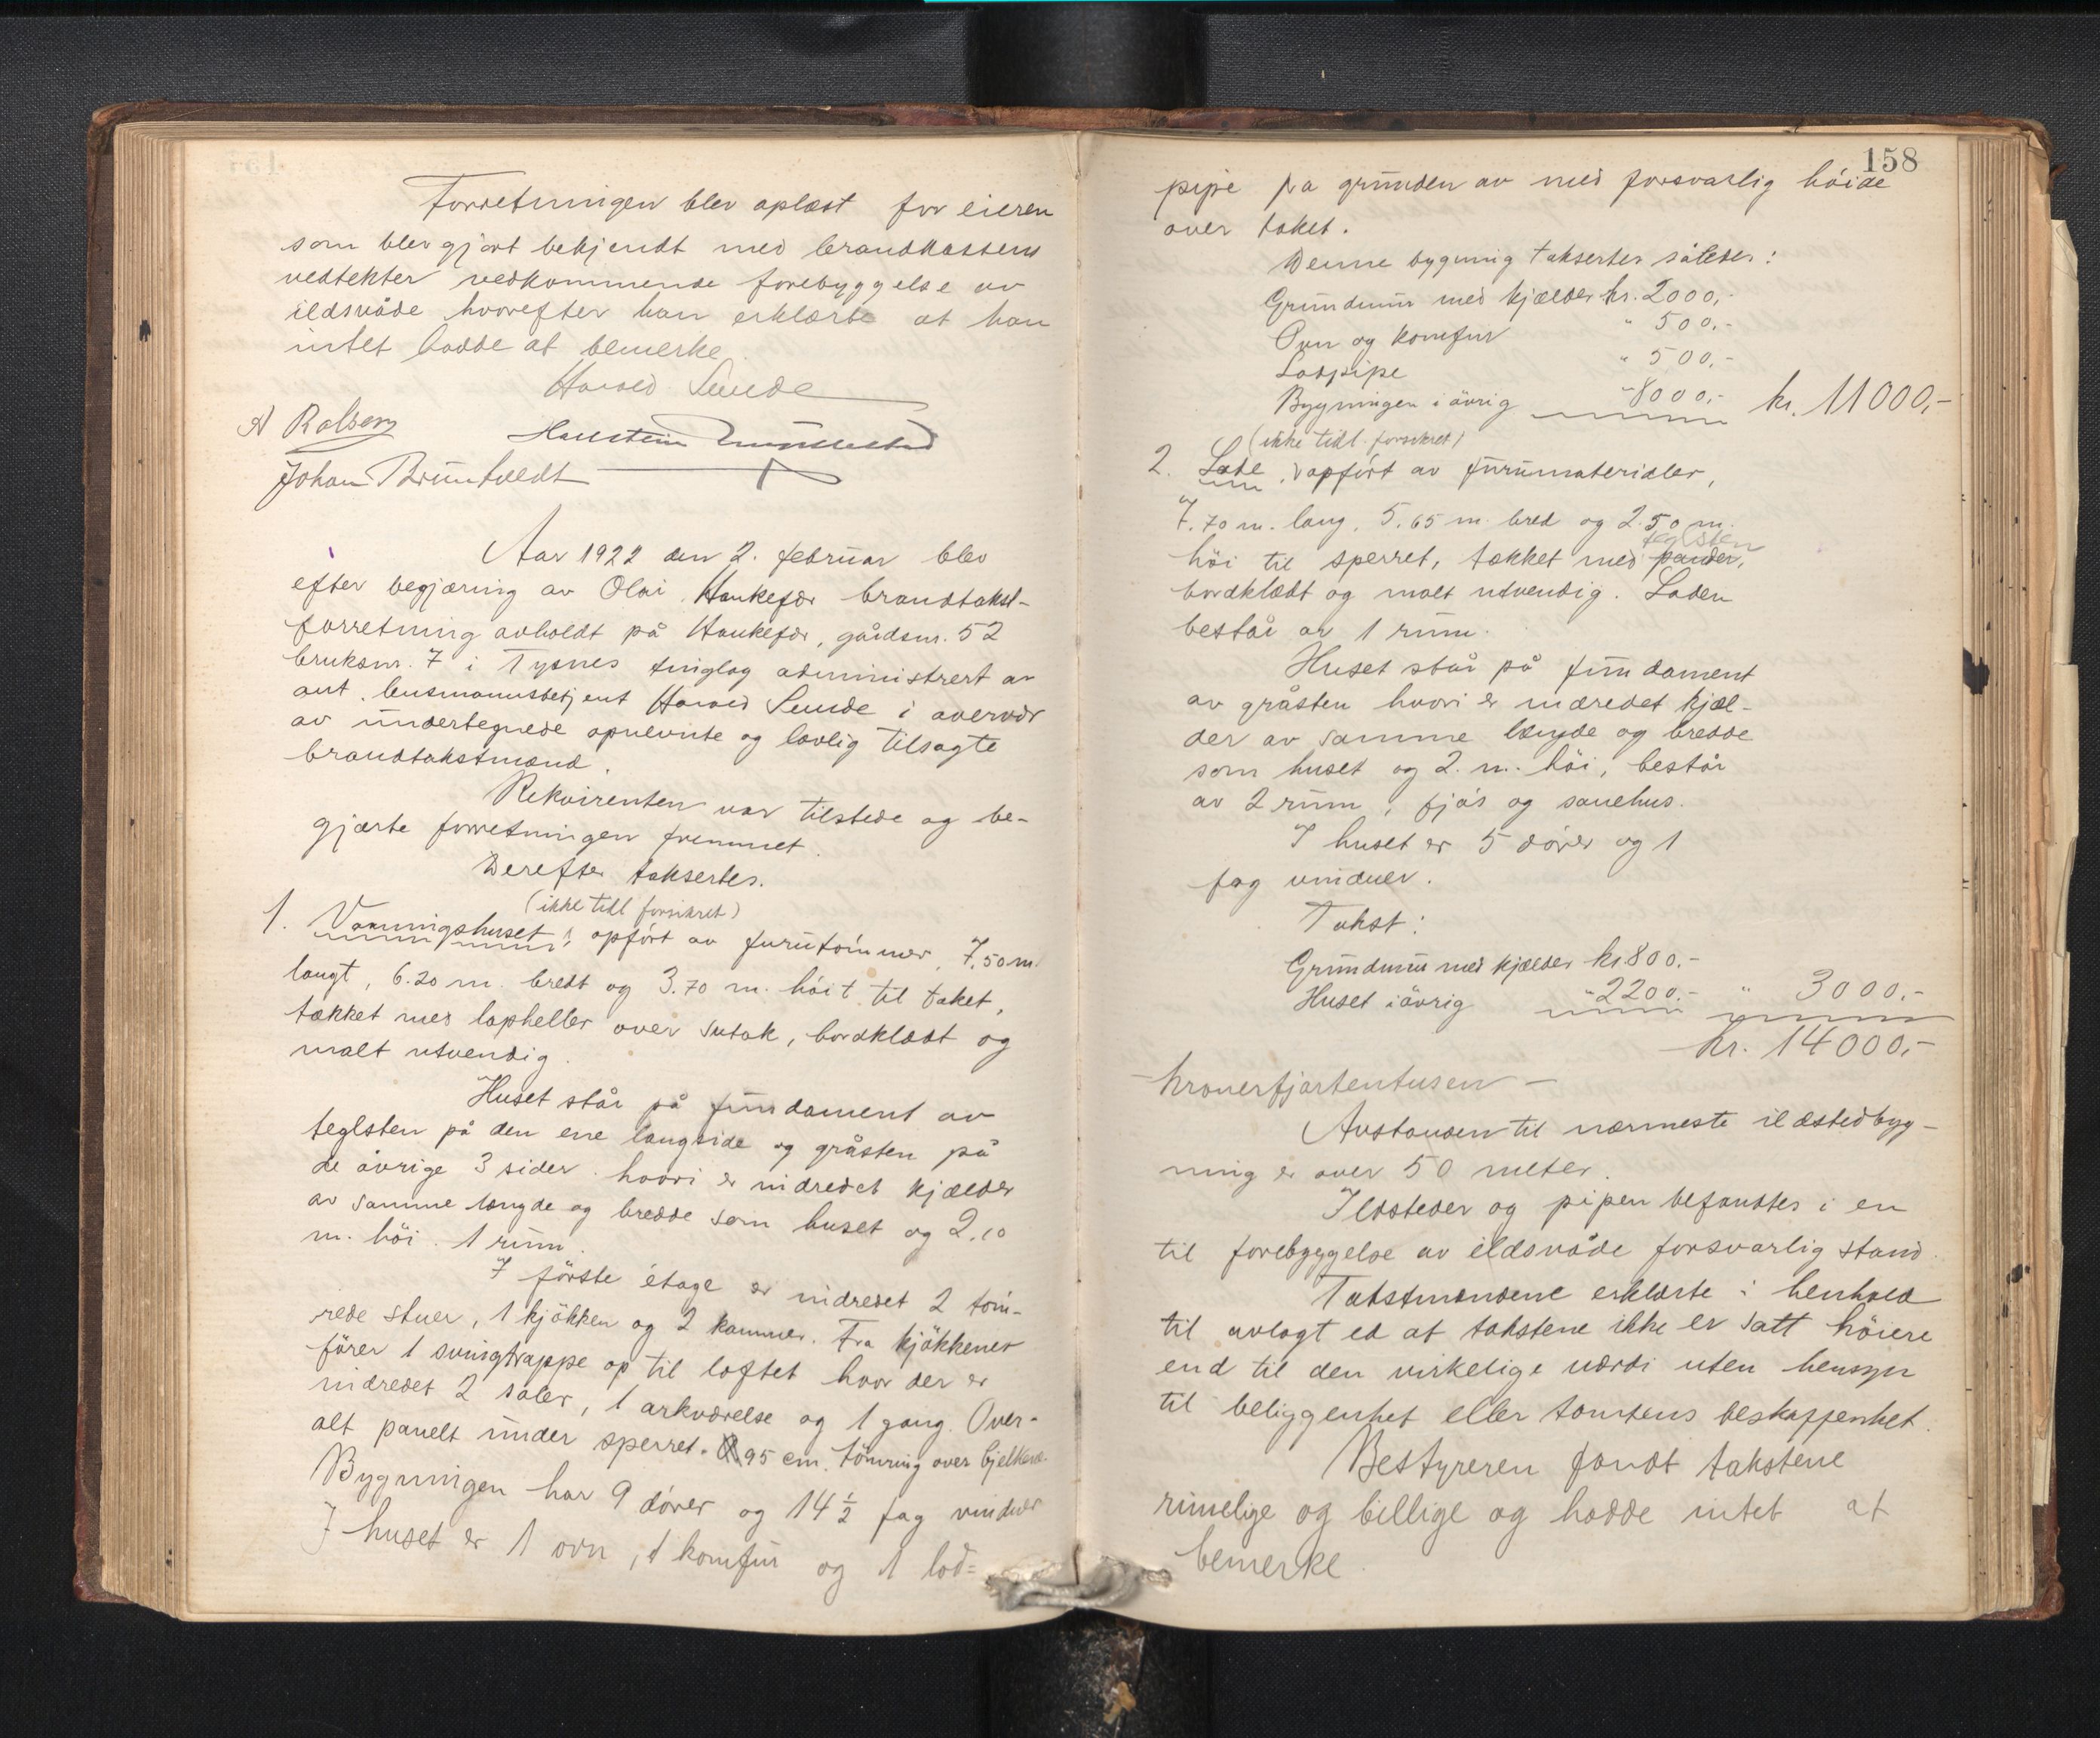 Forretningen blev oplæst for eieren
som blev gjort bekjendt med brandkassens
vedtekter vedkommende forebyggelse av
ildsvåde hvorefter han erklærte at han
intet hadde at bemerke.
Harald Sunde
A Rolsvåg
Hallstein
Johan Brundtveldt
Aar 1922 den 2. februar blev
efter begjæring av Olai Haukefær brandtakst-
forretning avholdt på Haukefær, gårdsnr. 52
bruksnr. 7 i Tysnes tinglag administrert av
aut. lensmannsbetjent Harald Sunde i overvær
av undertegnede opnevnte og lovlig tilsagte
brandtakstmænd.
Rekvirenten var tilstede og be-
gjærte forretningen fremmet.
Derefter taksertes.
(ikke tidl forsikret)
1. Vaaningshuset, opført av furutømmer, 7,50 m.
langt, 6.20 m. bredt og 3.70 m. høit til taket,
tækket med lapheller over sutak, bordklædt og
malt utvendig.
Huset står på fundament av
teglsten på den ene langside og gråsten på
de øvrige 3 sider. hvori er indredet kjælder
av samme længde og bredde som huset og 2.10
m. höi. 1 rum.
I første étage er indredet 2 töm-
rede stuer, 1 kjøkken og 2 kammer. Fra kjøkkenet
fører 1 svingtrappe op til loftet hvor der er
indredet 2 saler, 1 arkværelse og 1 gang. Over-
alt panelt under sperret. 95 cm. tömring over bjelkene.
Bygningen har 9 dører og 14 ½ fag vinduer
I huset er 1 ovn, 1 komfur og 1 lod=
158
pipe fra grunden av med forsvarlig høide
over taket.
Denne bygning taksertes således:
Grundmur med kjælder kr. 2000,-
Ovn og komfur " 500,-
Lodpipe " 500,-
Bygningen i øvrig " 8000,- kr. 11000,-
(ikke tidl. forsikret)
2. Lade, opført av furumaterialer,
7.70 m. lang, 5.65 m. bred og 2.50 m.
teglsten
höi til sperret, tækket med pander,
bordklædt og malt utvendig. Laden
består av 1 rum.
Huset står på fundament
av gråsten hvori er indredet kjæl-
der av samme længde og bredde
som huset og 2. m. höi, består
av 2 rum, fjøs og sauehus.
I huset er 5 dører og 1
fag vinduer.
Takst:
Grundmur med kjælder kr 800.-
Huset i øvrig " 2200.- " 3000.-
kr. 14000,-
- kronerfjortentusen -
Avstanden til nærmeste ildstedbyg-
ning er over 50 meter.
Ildsteder og pipen befandtes i en
til forebyggelse av ildsvåde forsvarlig stand.
Takstmændene erklærte i henhold
til avlagt ed at takstene ikke er satt høiere
end til den virkelige værdi uten hensyn
til beliggenhet eller tomtens beskaffenhet.
Bestyreren fandt takstene
rimelige og billige og hadde intet at
bemerke